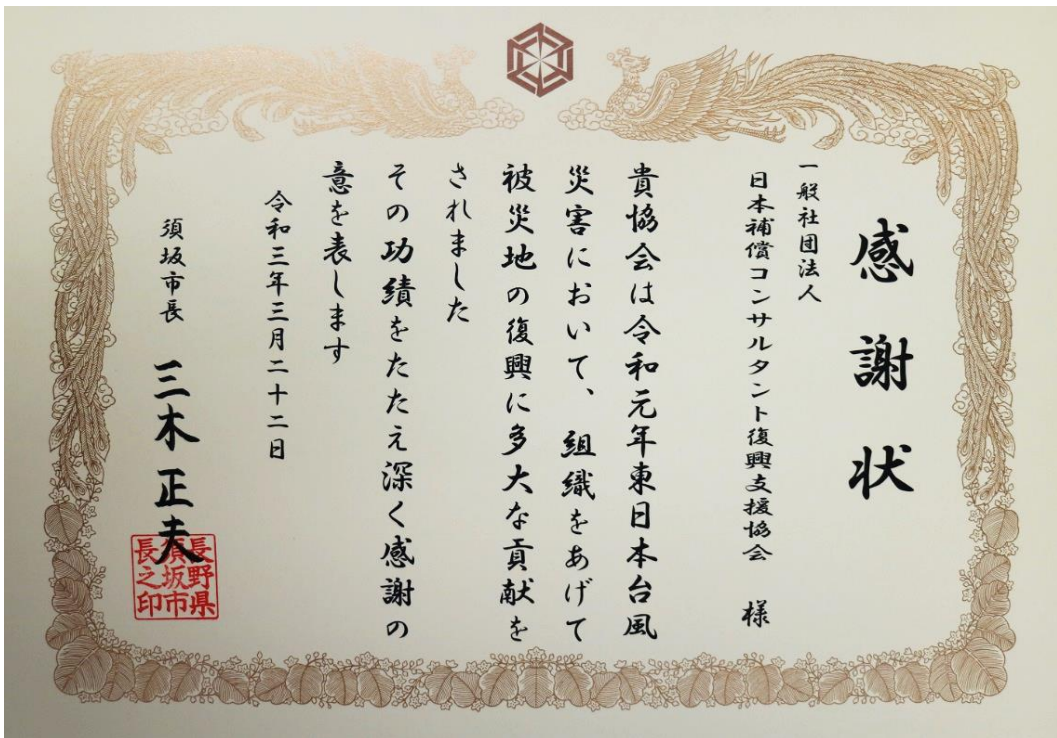 感謝状
一般社団法人
日本補償コンサルタント復興支援協会 様
貴協会は令和元年東日本台風
災害において、組織をあげて
被災地の復興に多大な貢献を
されました
その功績をたたえ深く感謝の
意を表します
令和三年三月二十二日
須坂市長 三木正夫
長野県
須坂市
長之印